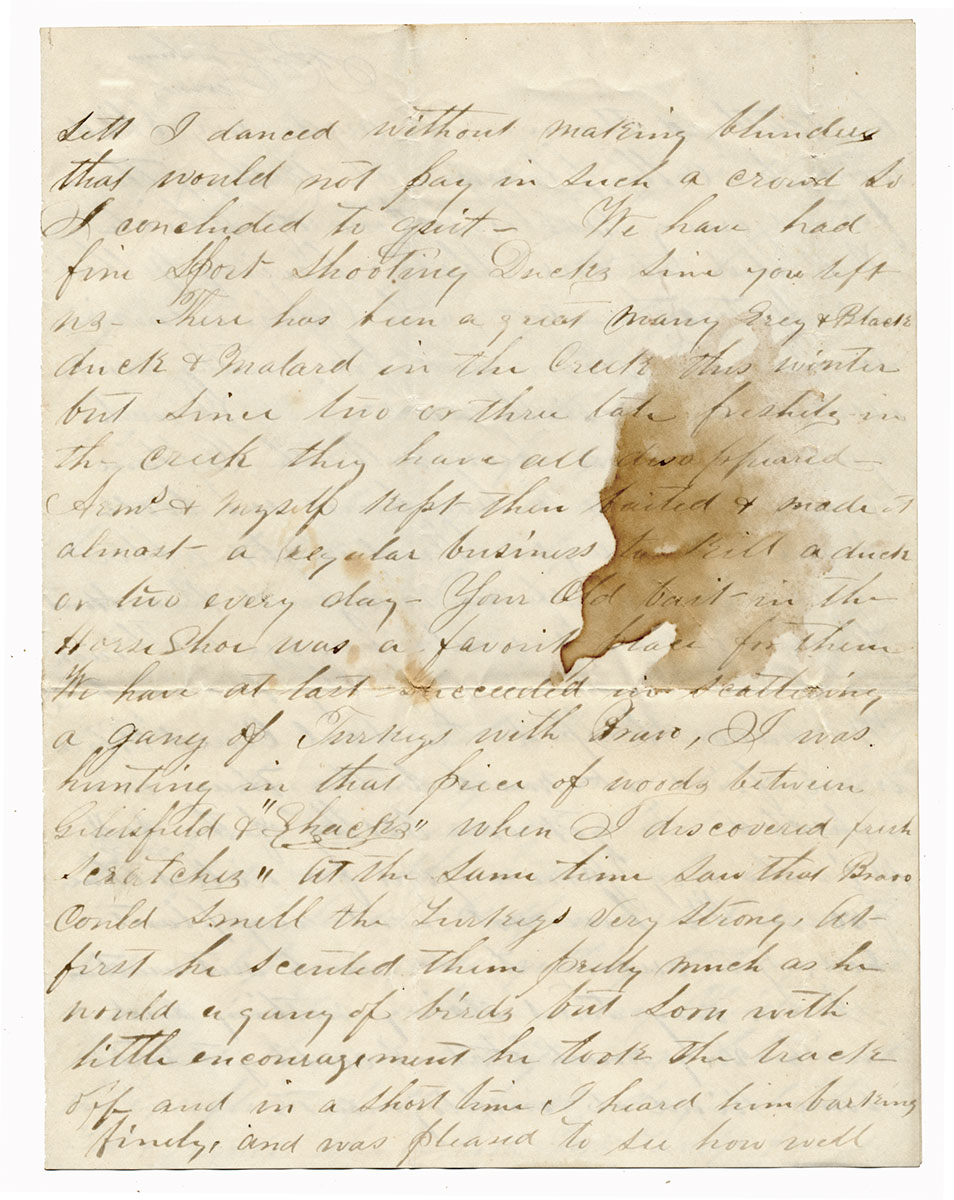 sett I danced without making blunders
that would not pay in such a crowd so
I concluded to quit — We have had
fine sport shooting Ducks sinc you left
us — There has been a great many Grey & Black
duck & Malard in the Creek this winter
but since two or three late freshits in
the creek they have all disappeared —
& myself kept them baited & made it
almost a regular business to kill a duck
or two every day — Your Old bait in the
Horse Shoe was a favorit place for them
We have at last succeeded in scattering
a gang of Turkeys with Bravo, I was
hunting in that piece of woods between
& "Shacks" when I discovered fresh
scratches" at the same time saw that Bravo
Could smell the Turkeys very strong, At
first he scented them pretty much as he
would a gang of birds but soon with
little encouragement he took the track
off and in a short time I heard him barking
finely, and was pleased to see how well